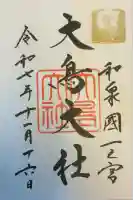 和泉國一之宮
大鳥大社
令和七年十一月十六日